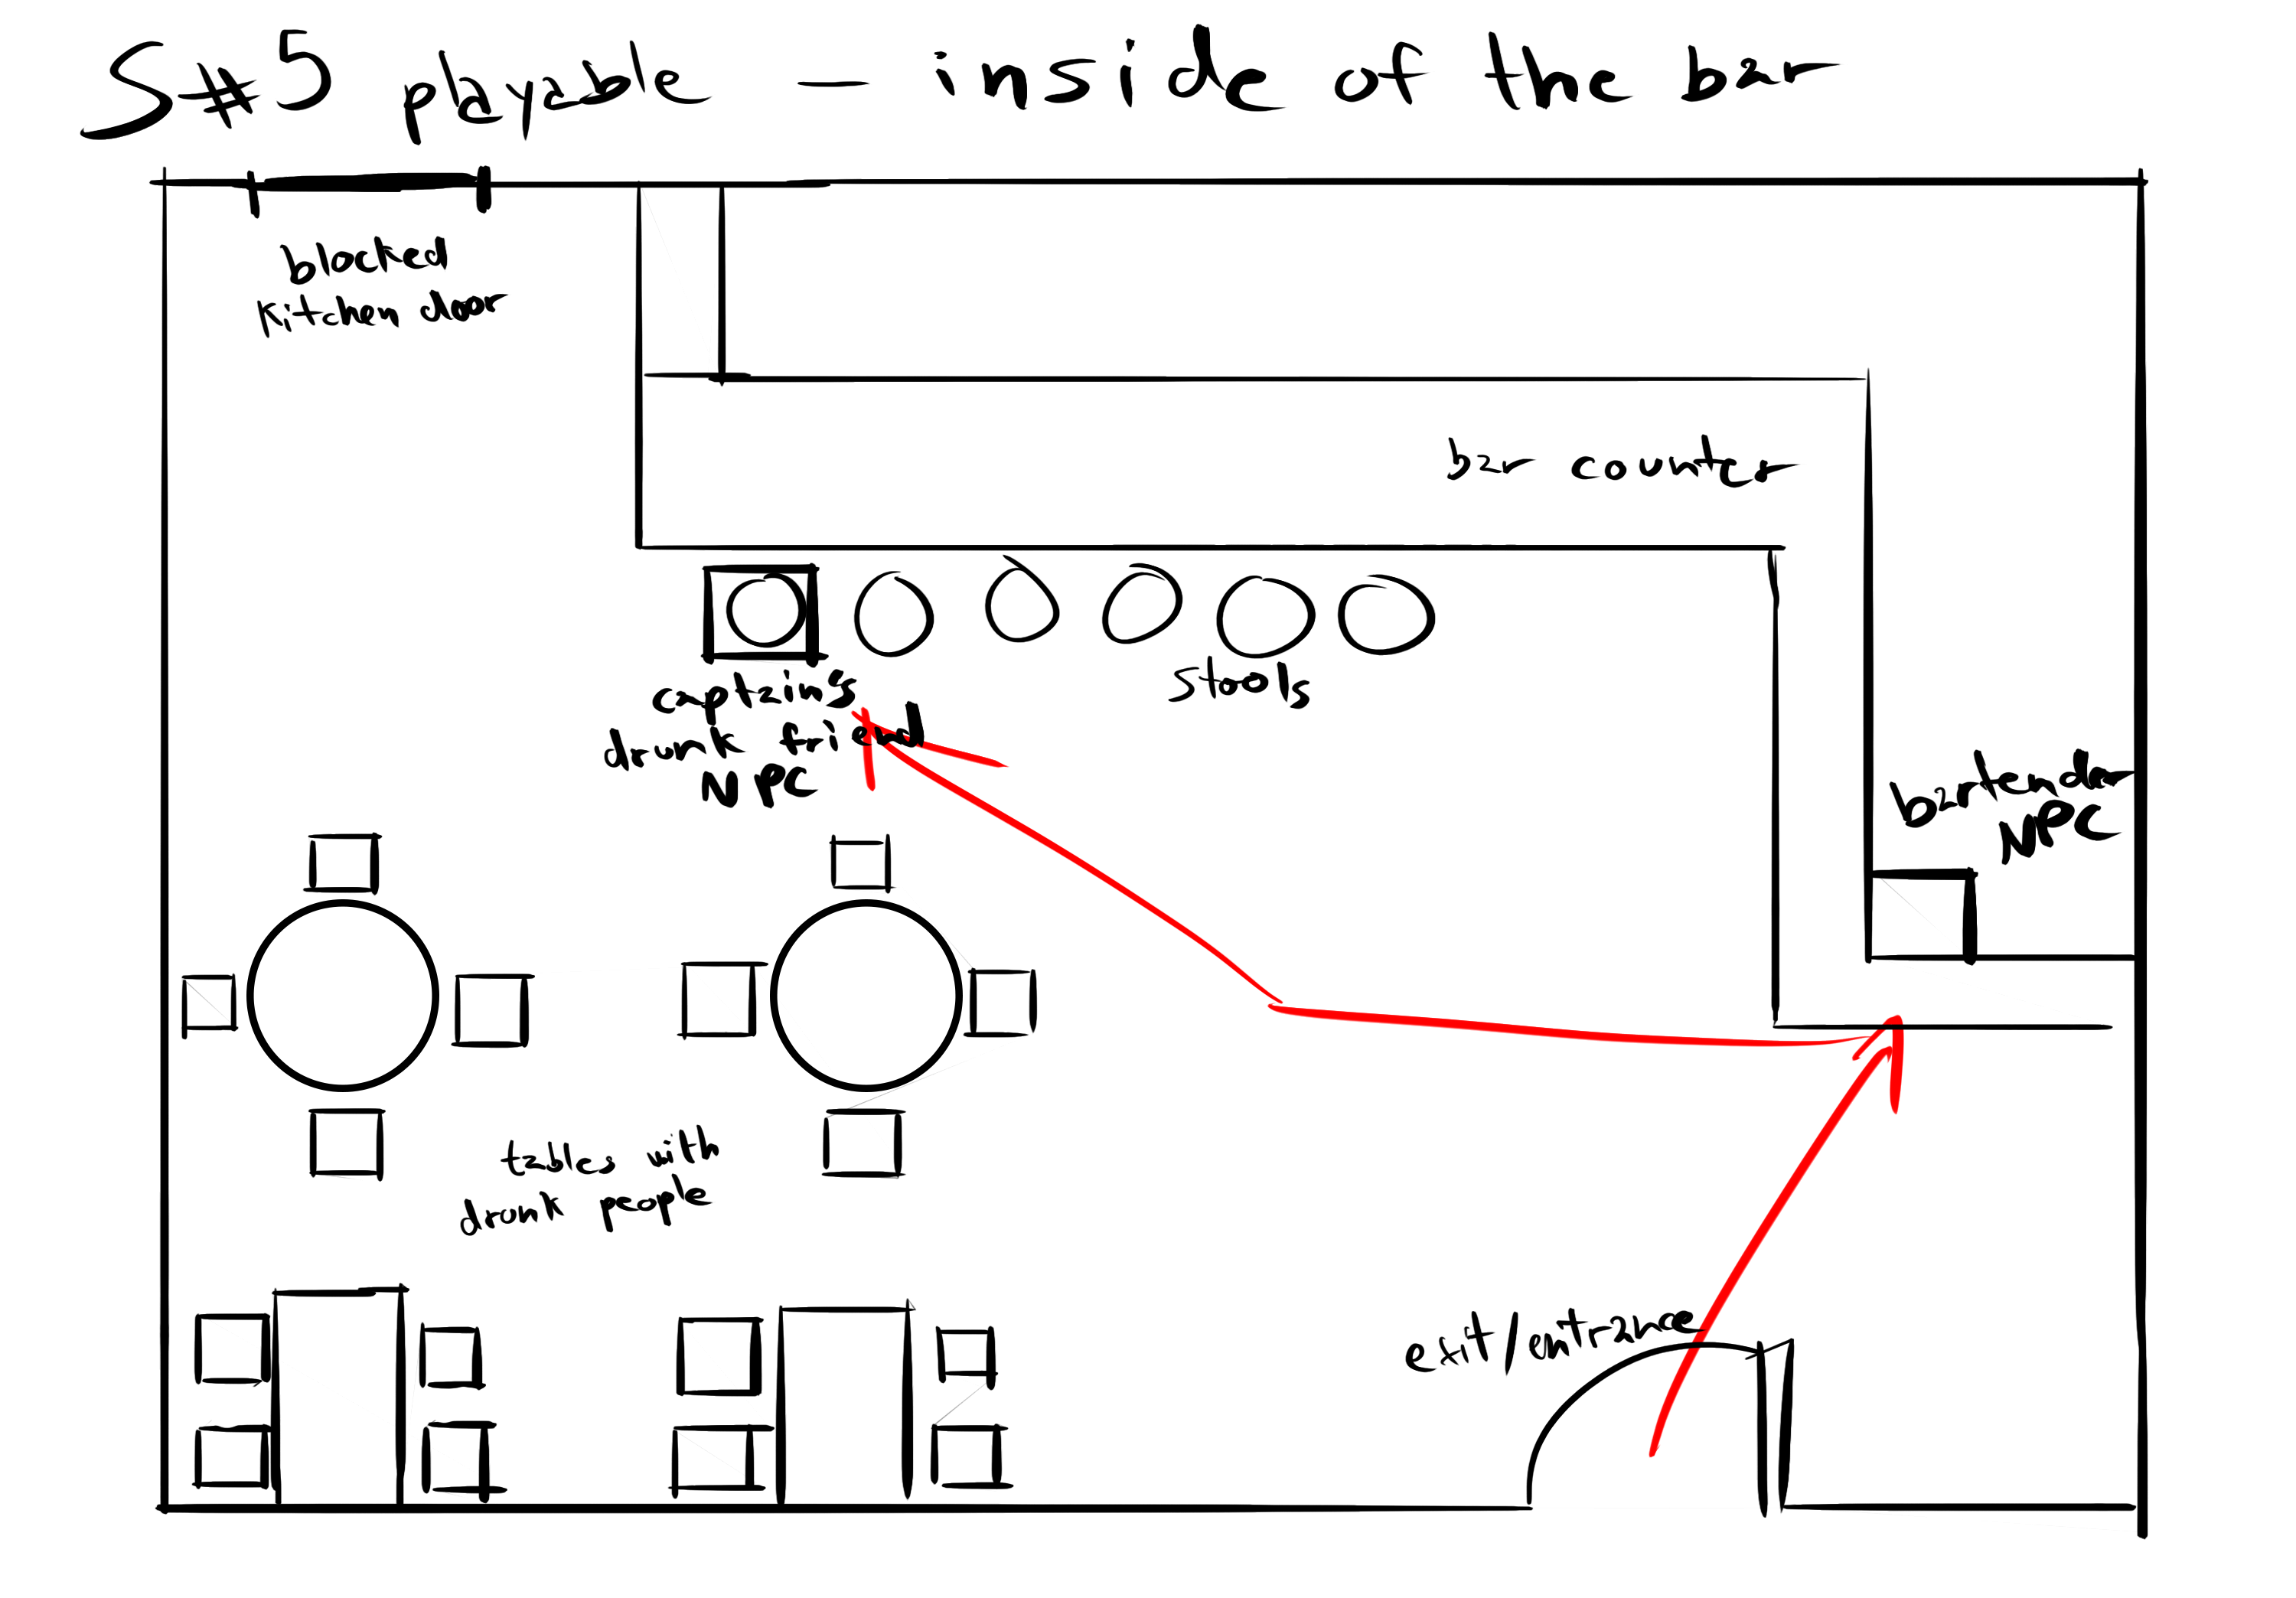 S#5 playable — inside of the bar
blocked
kitchen door
bar counter
stools
captain's
drunk friend
NPC
bartender
NPC
tables with
drunk people
exit/entrance